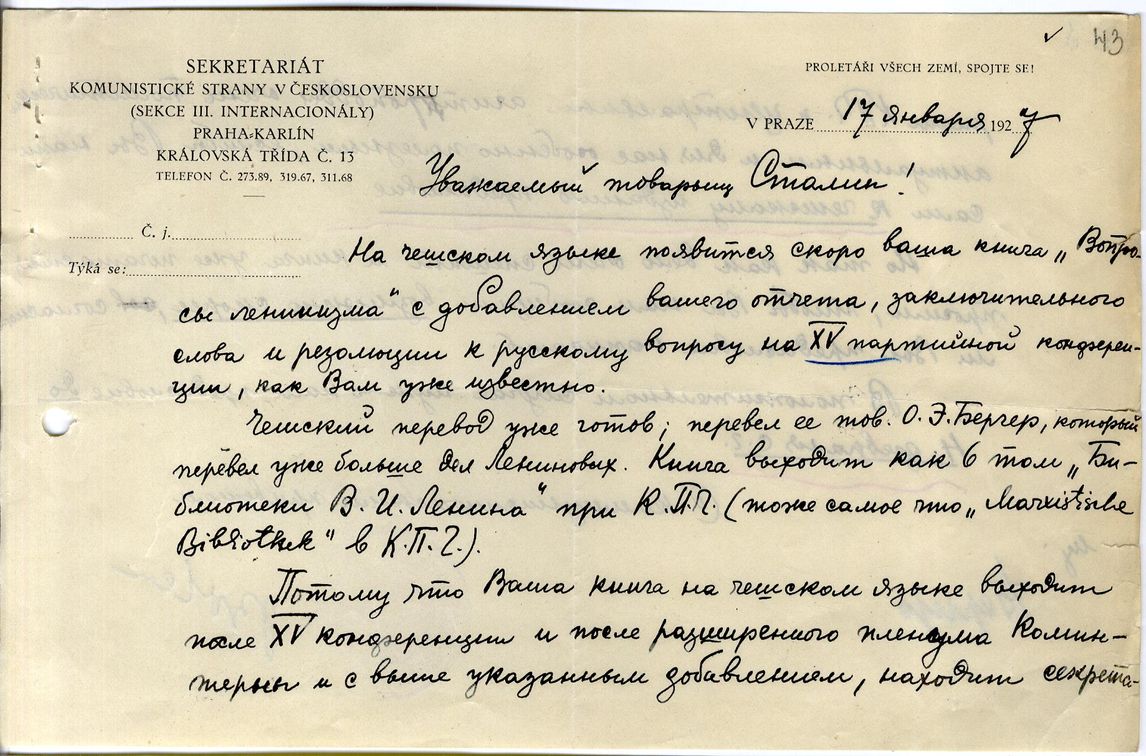 43
SEKRETARIÁT
KOMUNISTICKÉ STRANY V ČESKOSLOVENSKU
(SEKCE III. INTERNACIONÁLY)
PRAHA-KARLÍN
KRÁLOVSKÁ TŘÍDA Č. 13
TELEFON Č. 273.89, 319.67, 311.68
PROLETÁŘI VŠECH ZEMÍ, SPOJTE SE!
V PRAZE 17 января 1927
Č. j.
Týká se:
Уважаемый товарищ Сталин!
На чешском языке появится скоро ваша книга „Вопро-
сы ленинизма" с добавлением вашего отчета, заключительного
слова и резолюции к русскому вопросу на XV партийной конферен-
ции, как Вам уже известно.
Чешский перевод уже готов; перевел ее тов. О. Э. Бергер, который
перевел уже больше дел Лениновых. Книга выходит как 6 том „Би-
блиотеки В. И. Ленина" при К.П.Ч. (тоже самое что „Marxistische
Bibliothek" в К.П.Г.).
Потому что Ваша книга на чешском языке выходит
после XV конференции и после расширенного пленума Комин-
терны и с выше указанным добавлением, находит секрета-